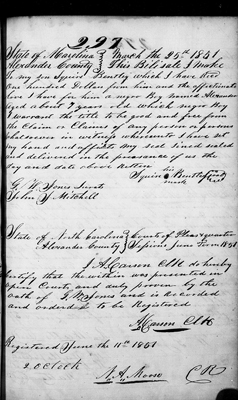 227
State of N Carolina } March the 25th 1851
Alexander County } This Bill sale I make
to my son Squire Bently which I have Recd
One hundred Dollar from him and the affectionate
love I have for him a negro Boy named Alexander
Aged about 7 years old which negro Boy
I warrant the title to be good and free from
the Claim or Claims of any person or persons
whatsoever in witness whereunto I have set
my hand and affixt my Seal Signed sealed
and delivered in the presence of us the
day and date above written
his
Squire Bently
mark
G. W. Jones Jurat
John Mitchell
State of North Carolina } Court of Pleas & quarter
Alexander County } Sessions June Term 1851
I A Carson Clk do hereby
Certify that the within was presented in
open Court and duly proven by the
oath of G. W. Jones and is Recorded
and ordered to be Registered
A Carson Clk
Registered June the 10th 1851
2 O Clock